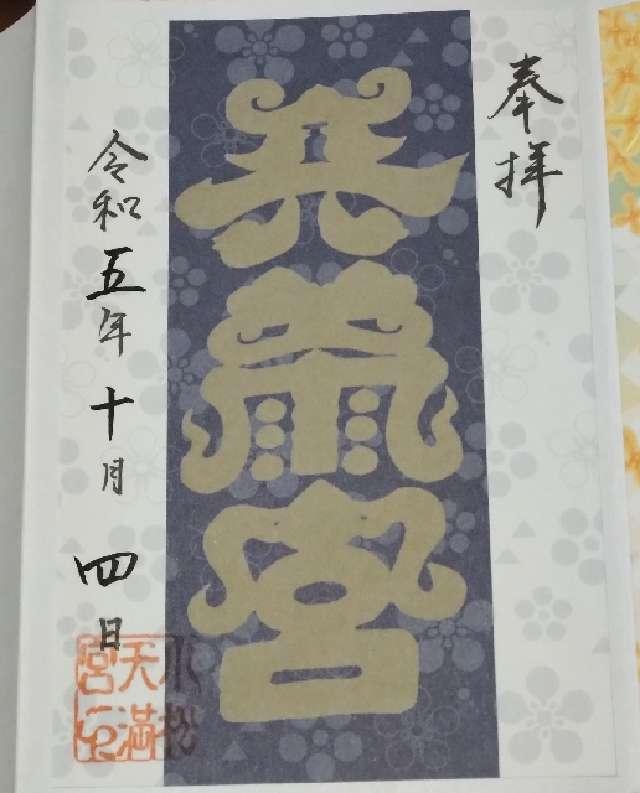 奉拝
天満宮
令和五年十月四日
小松
天満
宮印